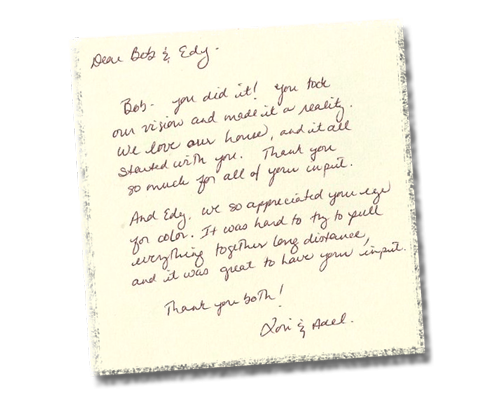 Dear Bob & Edy.
Bob- you did it! You took
our vision and made it a reality.
We love our house, and it all
started with you. Thank you
so much for all of your input.
And Edy, we so appreciated your eye
for color. It was hard to try to pull
everything together long distance,
and it was great to have your input.
Thank you both!
Lori & Adel.